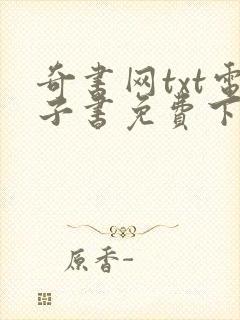 奇书网txt电
子书免费下
原香-